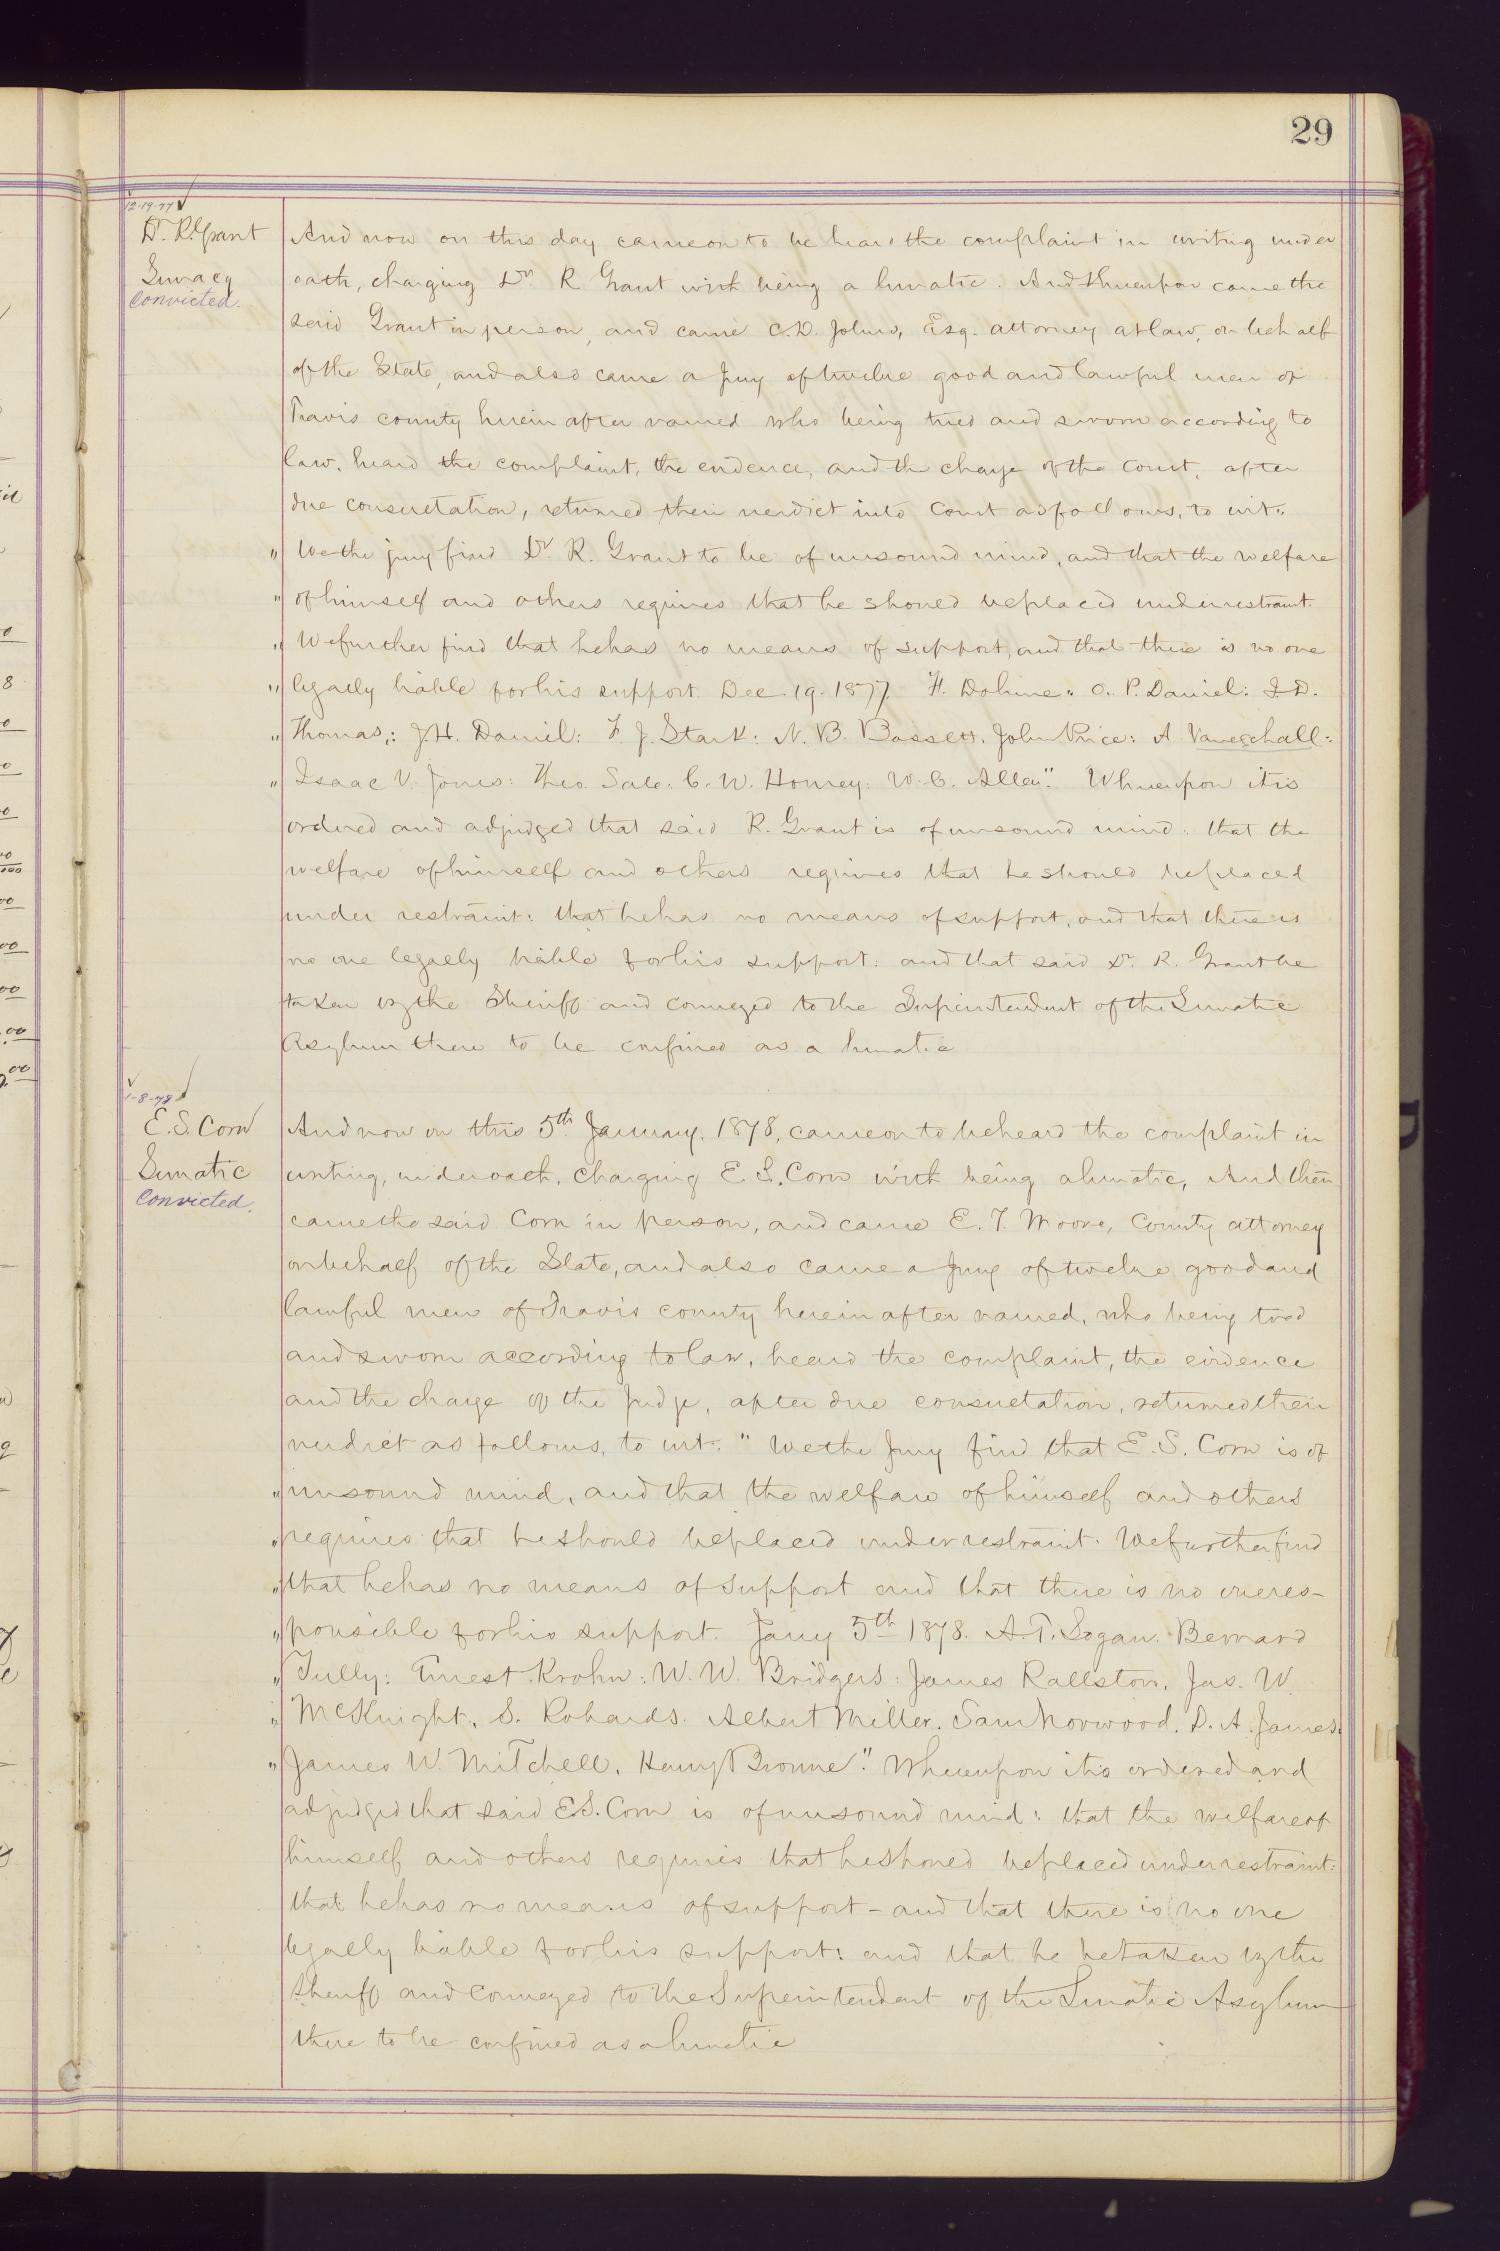 29
12-19-77
Dr. R. Grant
Lunacy
Convicted.
And now on this day came on to be heard the complaint in writing under
oath, charging Dr. R Grant with being a lunatic. And thereupon came the
said Grant in person, and came C.D. Johns, Esq. attorney at law, on behalf
of the State, and also came a Jury of twelve good and lawful men of
Travis county herein after named who being tried and sworn according to
law, heard the complaint, the evidence, and the charge of the Court, after
due consultation, returned their verdict into Court as follows, to wit:
" We the jury find Dr. R. Grant to be of unsound mind, and that the welfare
" of himself and others requires that he should be placed under restraint.
" We further find that he has no means of support, and that there is no one
" legally liable for his support. Dec. 19. 1877. H. Dohme. O. P. Daniel: I. D.
" Thomas,: J.H. Daniel: F. J. Stark: N. B. Bassett. John Price: A.
" Isaac V. Jones: Theo. C. W. Homey: W. C. Allen." Whereupon it is
ordered and adjudged that said R. Grant is of unsound mind: that the
welfare of himself and others requires that he should be placed
under restraint: that he has no means of support, and that there is
no one legally liable for his support: and that said Dr. R. Grant be
taken by the Sheriff and conveyed to the Superintendent of the Lunatic
Asylum there to be confined as a lunatic
1-8-78
E. S. Corn
Lunatic
Convicted.
And now on this 5th January, 1878, came on to be heard the complaint in
writing, under oath, charging E. S. Corn with being a lunatic, And then
came the said Corn in person, and came E. T. Moore, County attorney
on behalf of the State, and also came a Jury of twelve good and
lawful men of Travis county herein after named, who being tried
and sworn according to law, heard the complaint, the evidence
and the charge of the Judge, after due consultation, returned their
verdict as follows, to wit: " We the Jury find that E. S. Corn is of
" unsound mind, and that the welfare of himself and others
" requires that he should be placed under restraint. We further find
" that he has no means of support and that there is no one res-
" ponsible for his support. Jany 5th 1878. A. T. Logan. Bernard
" Tully: Ernest Krohn: W. W. Bridgers: James Rallston. Jas. W.
" McKnight. S. Robards. Albert Miller. Sam Norwood. D. A. James.
" James W. Mitchell. Henry Browne." Whereupon it is ordered and
adjudged that said E. S. Corn is of unsound mind: that the welfare of
himself and others requires that he should be placed under restraint:
that he has no means of support - and that there is no one
legally liable for his support: and that he be taken by the
Sheriff and conveyed to the Superintendent of the Lunatic Asylum
there to be confined as a lunatic